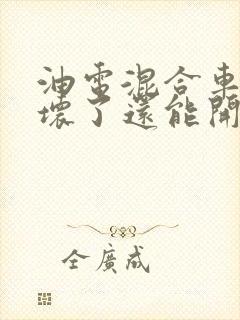 油電混合車
壞了還能開
仝廣成